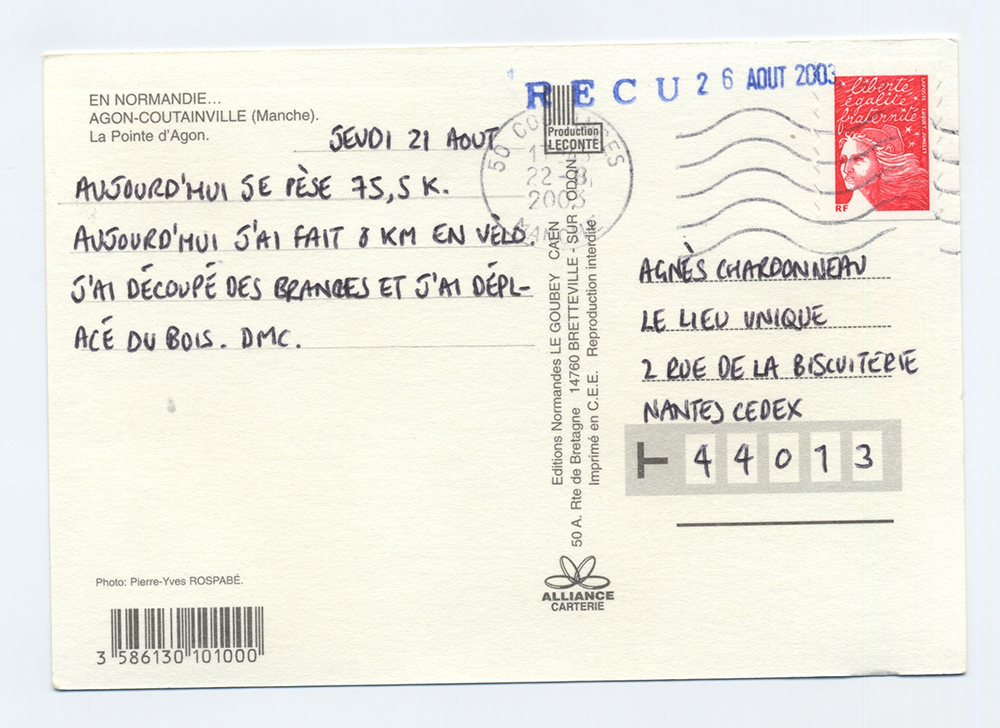 EN NORMANDIE...
AGON-COUTAINVILLE (Manche).
La Pointe d'Agon.
JEUDI 21 AOUT
AUJOURD'HUI JE PÈSE 75,5 K.
AUJOURD'HUI J'AI FAIT 8 KM EN VÉLO.
J'AI DÉCOUPÉ DES BRANCES ET J'AI DÉPL-
ACÉ DU BOIS. DMC.
Photo: Pierre-Yves ROSPABÉ.
3 586130 101000
RECU 26 AOUT 2003
Production
LECONTE
50
22-8
2003
Editions Normandes LE GOUBEY CAEN
50 A. Rte de Bretagne 14760 BRETTEVILLE - SUR - ODON
Imprimé en C.E.E. Reproduction interdite.
ALLIANCE
CARTERIE
liberté
égalité
fraternité
RF
LA POSTE
AGNÈS CHARDONNEAU
LE LIEU UNIQUE
2 RUE DE LA BISCUITERIE
NANTES CEDEX
44013